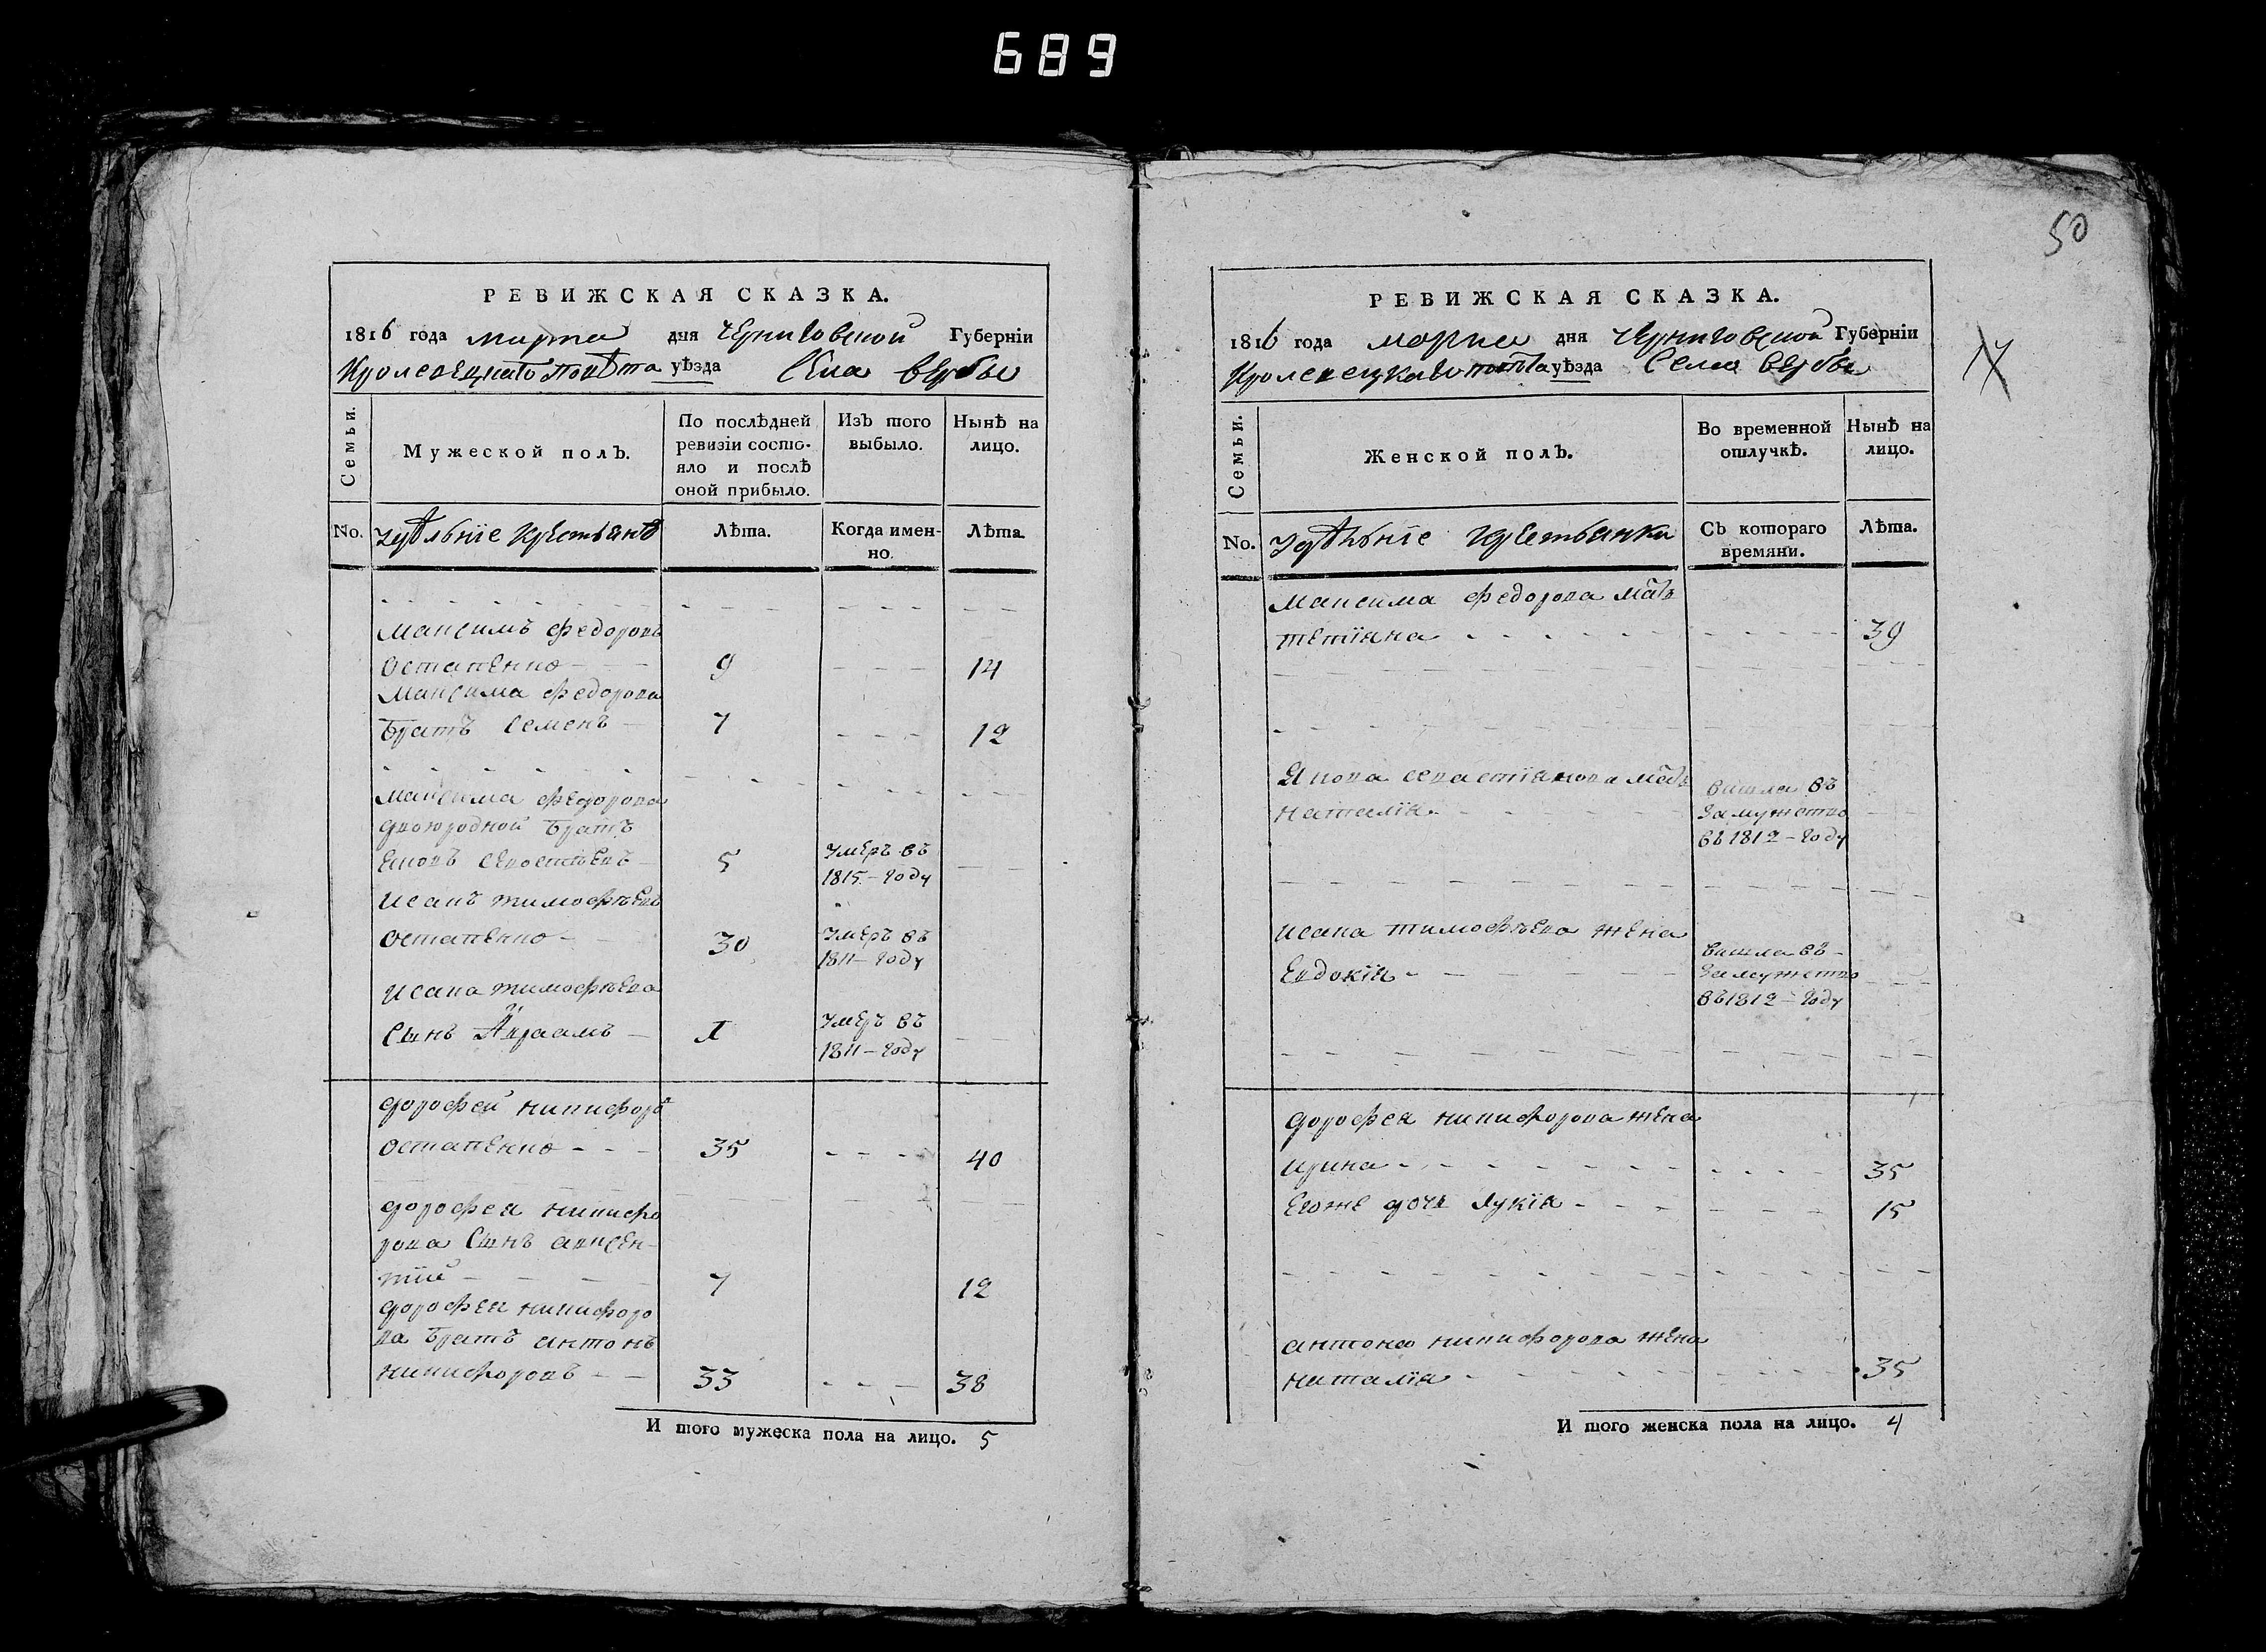 689
50
РЕВИЖСКАЯ СКАЗКА.
1816 года марта дня Черниговской Губерніи
Кролевецкаго повѣта уѣзда Села Вербы
Семьи.
Мужеской полъ.
По послѣдней ревизіи состояло и послѣ оной прибыло.
Изъ того выбыло.
Нынѣ на лицо.
No. Удѣльніе крестьянѣ
Лѣта.
Когда именно.
Лѣта.
Максимъ Федоровъ
Остапенко - - - 9 - - - 14
Максима Федорова
братъ Семенъ - 7 - - - 12
Максима Федорова
двоюродной братъ
Яковъ 5 умеръ въ
1815 - году
Исакъ Тимофѣевъ
Остапенко - 30 умеръ въ
1811 - году
Исака Тимофѣева
сынъ Авраамъ - 1 умеръ въ
1811 - году
Дорофей Никифоровъ
Остапенко - - - 35 - - - 40
Дорофея Никифо
рова сынъ Авксен-
тій - - - 7 12
Дорофея Никифоро
ва братъ Антонъ
Никифоровъ - - 33 - - - 38
И того мужеска пола на лицо. 5
РЕВИЖСКАЯ СКАЗКА.
1816 года марта дня Черниговской Губерніи
Кролевецкаго повѣта уѣзда Села Вербы
Семьи.
Женской полъ.
Во временной отлучкѣ.
Нынѣ на лицо.
No. Удѣльніе крестьянки
Съ котораго времяни.
Лѣта.
Максима Федорова мать
Тетіяна - - - 39
Якова Севастіянова мать вишла въ
Наталія - - - замужство
въ 1812 - году
Исака Тимофѣева жена вишла въ -
Евдокія - - - замужство
въ 1812 - году
Дорофея Никифорова жена
Ирина - - - 35
Егоже дочь Лукія - - - 15
Антона Никифорова жена
Наталія - - - 35
И того женска пола на лицо. 4